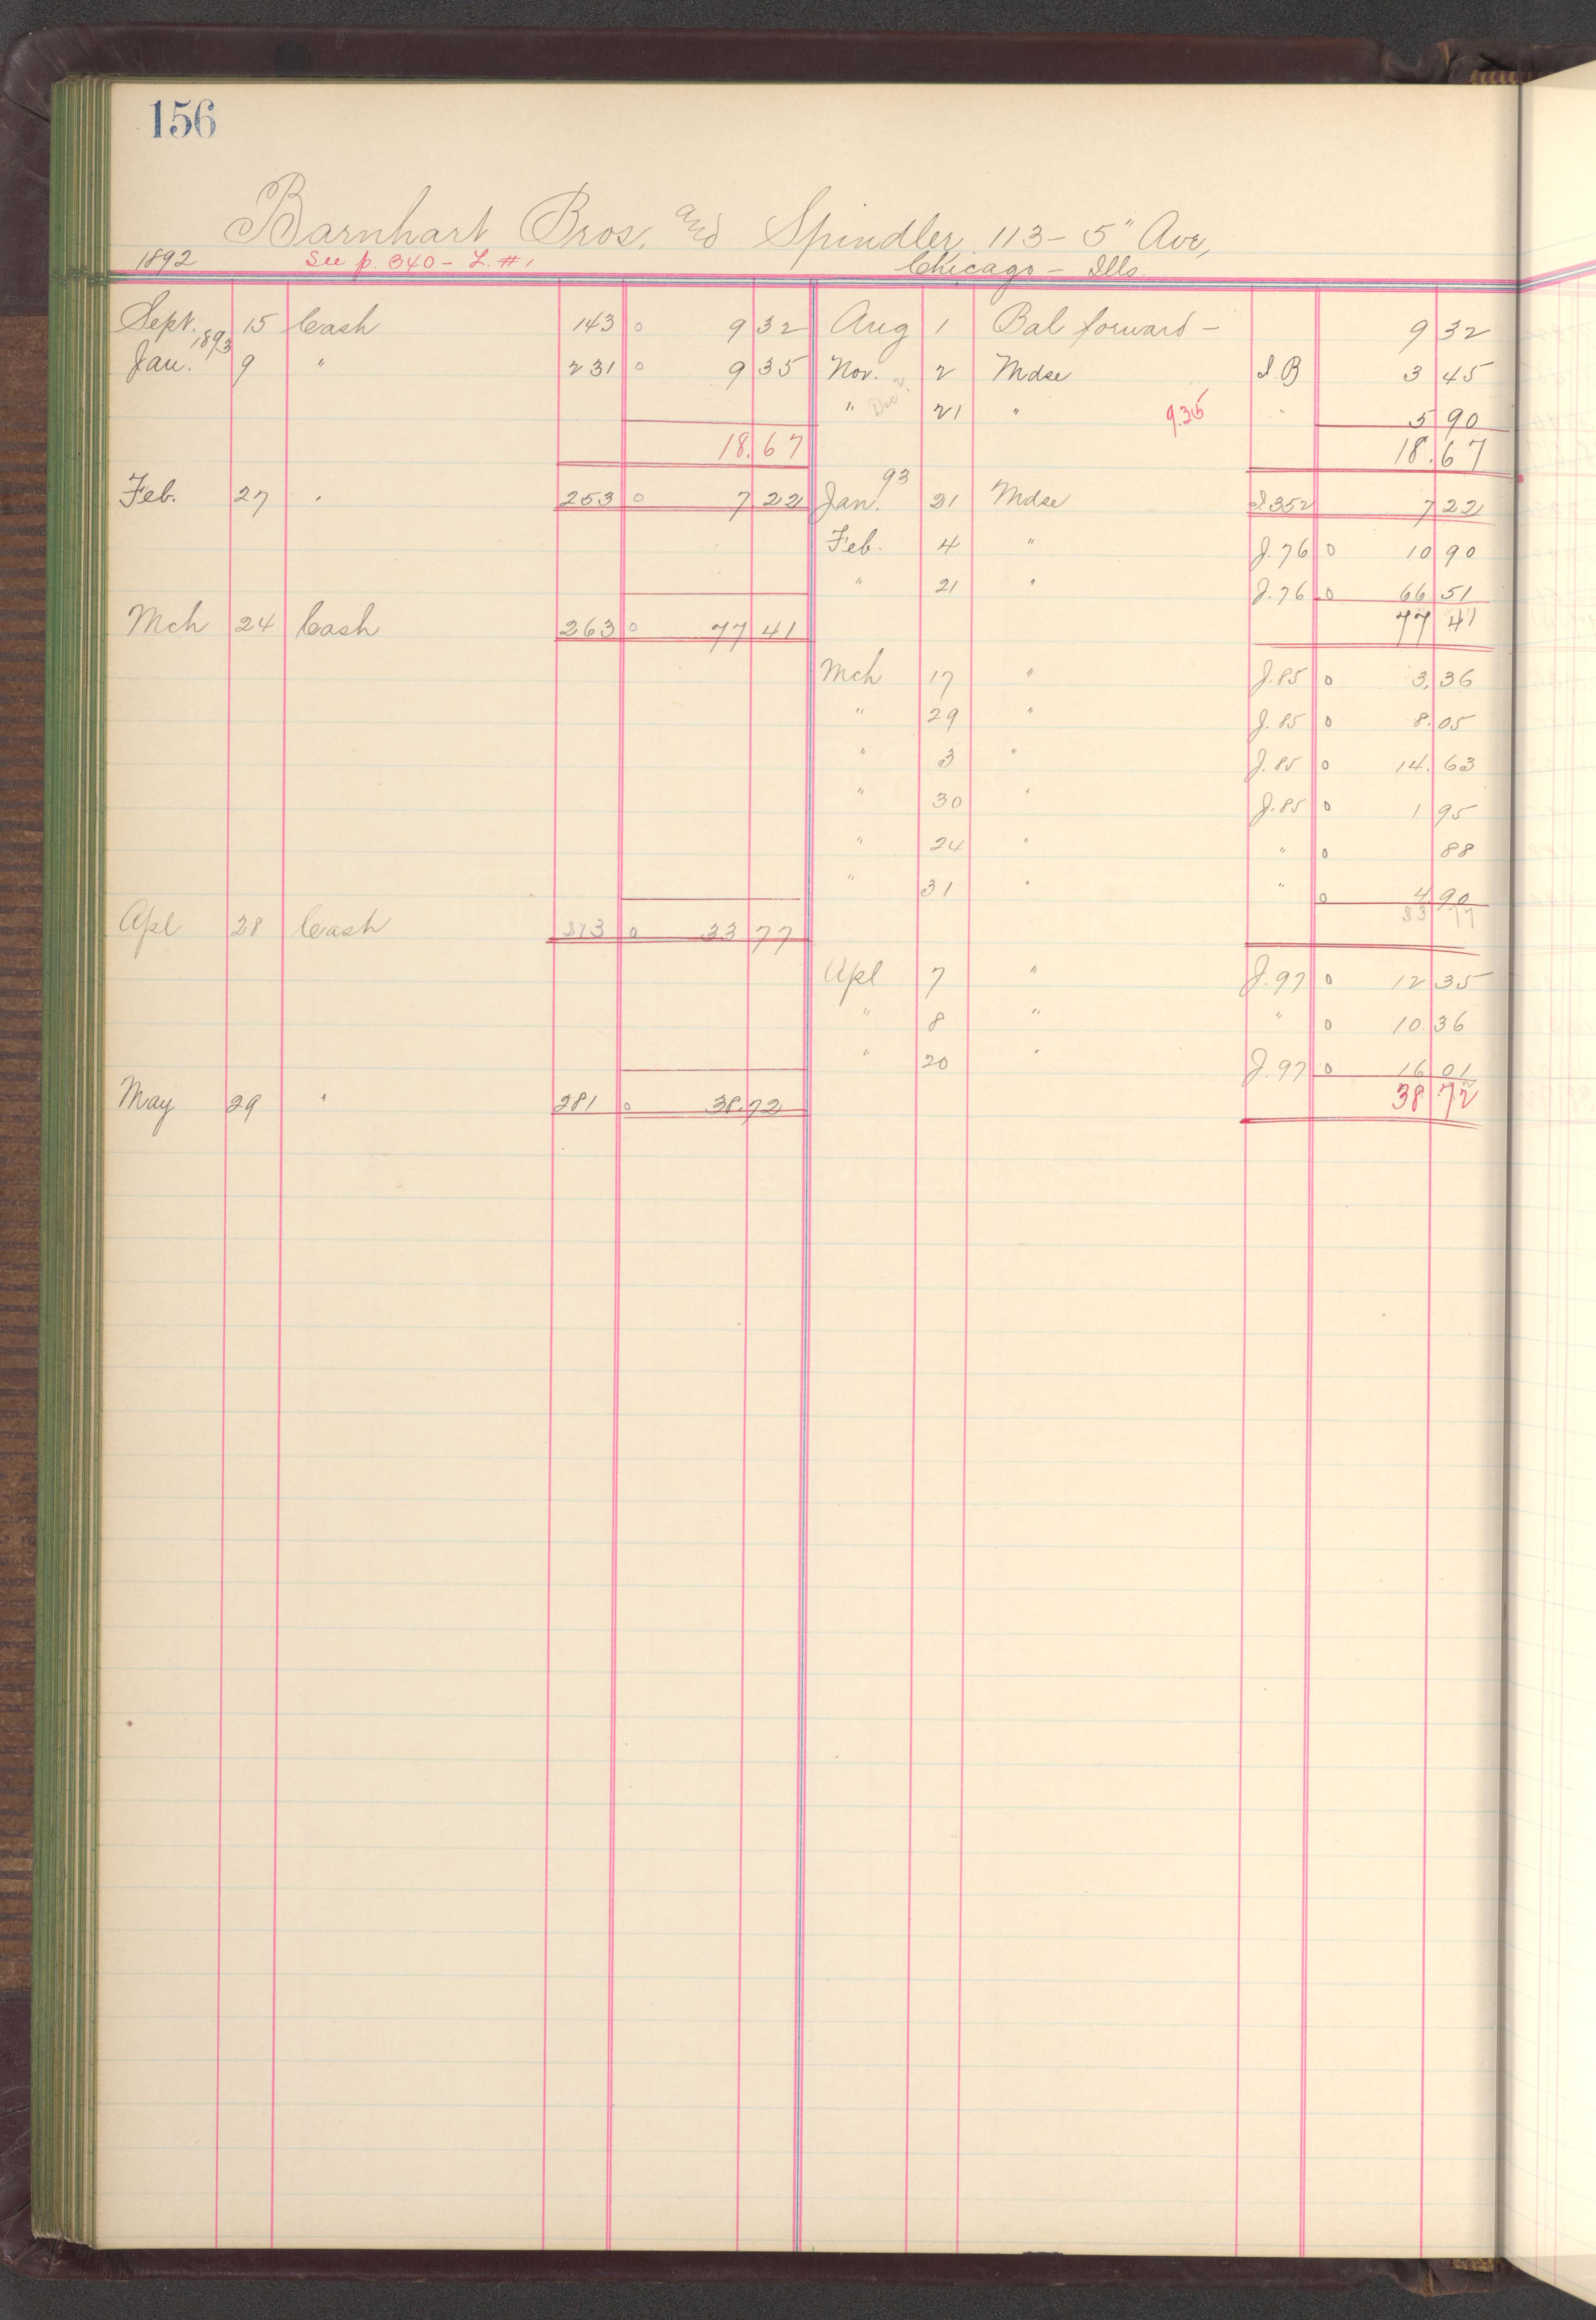 156
Barnhart Bros. and Spindler 113 - 5" Ave,
1892 See p. 340 - L. # 1 Chicago - Ills
Sept. 15 Cash 143 o 9 32 Aug 1 Bal forward - 9 32
1893
Jan. 9 " 231 o 9 35 Nov. 2 Mdse I.B 3 45
" Dec? 21 " 9.35 " 5 90
18.67 18.67
93
Feb. 27 " 253 o 7 22 Jan. 31 Mdse I 352 7 22
Feb. 4 " J. 76 o 10 90
" 21 " J. 76 o 66 51
Mch 24 Cash 263 o 77 41 77 41
Mch 17 " J. 85 o 3. 36
" 29 " J. 85 o 8. 05
" 3 " J. 85 o 14. 63
" 30 " J. 85 o 1 95
" 24 " " o 88
" 31 " " o 4 90
33 77
Apl 28 Cash 273 o 33 77
Apl 7 " J. 97 o 12 35
" 8 " " o 10. 36
" 20 " J. 97 o 16 01
May 29 " 281 o 38.72 38 72